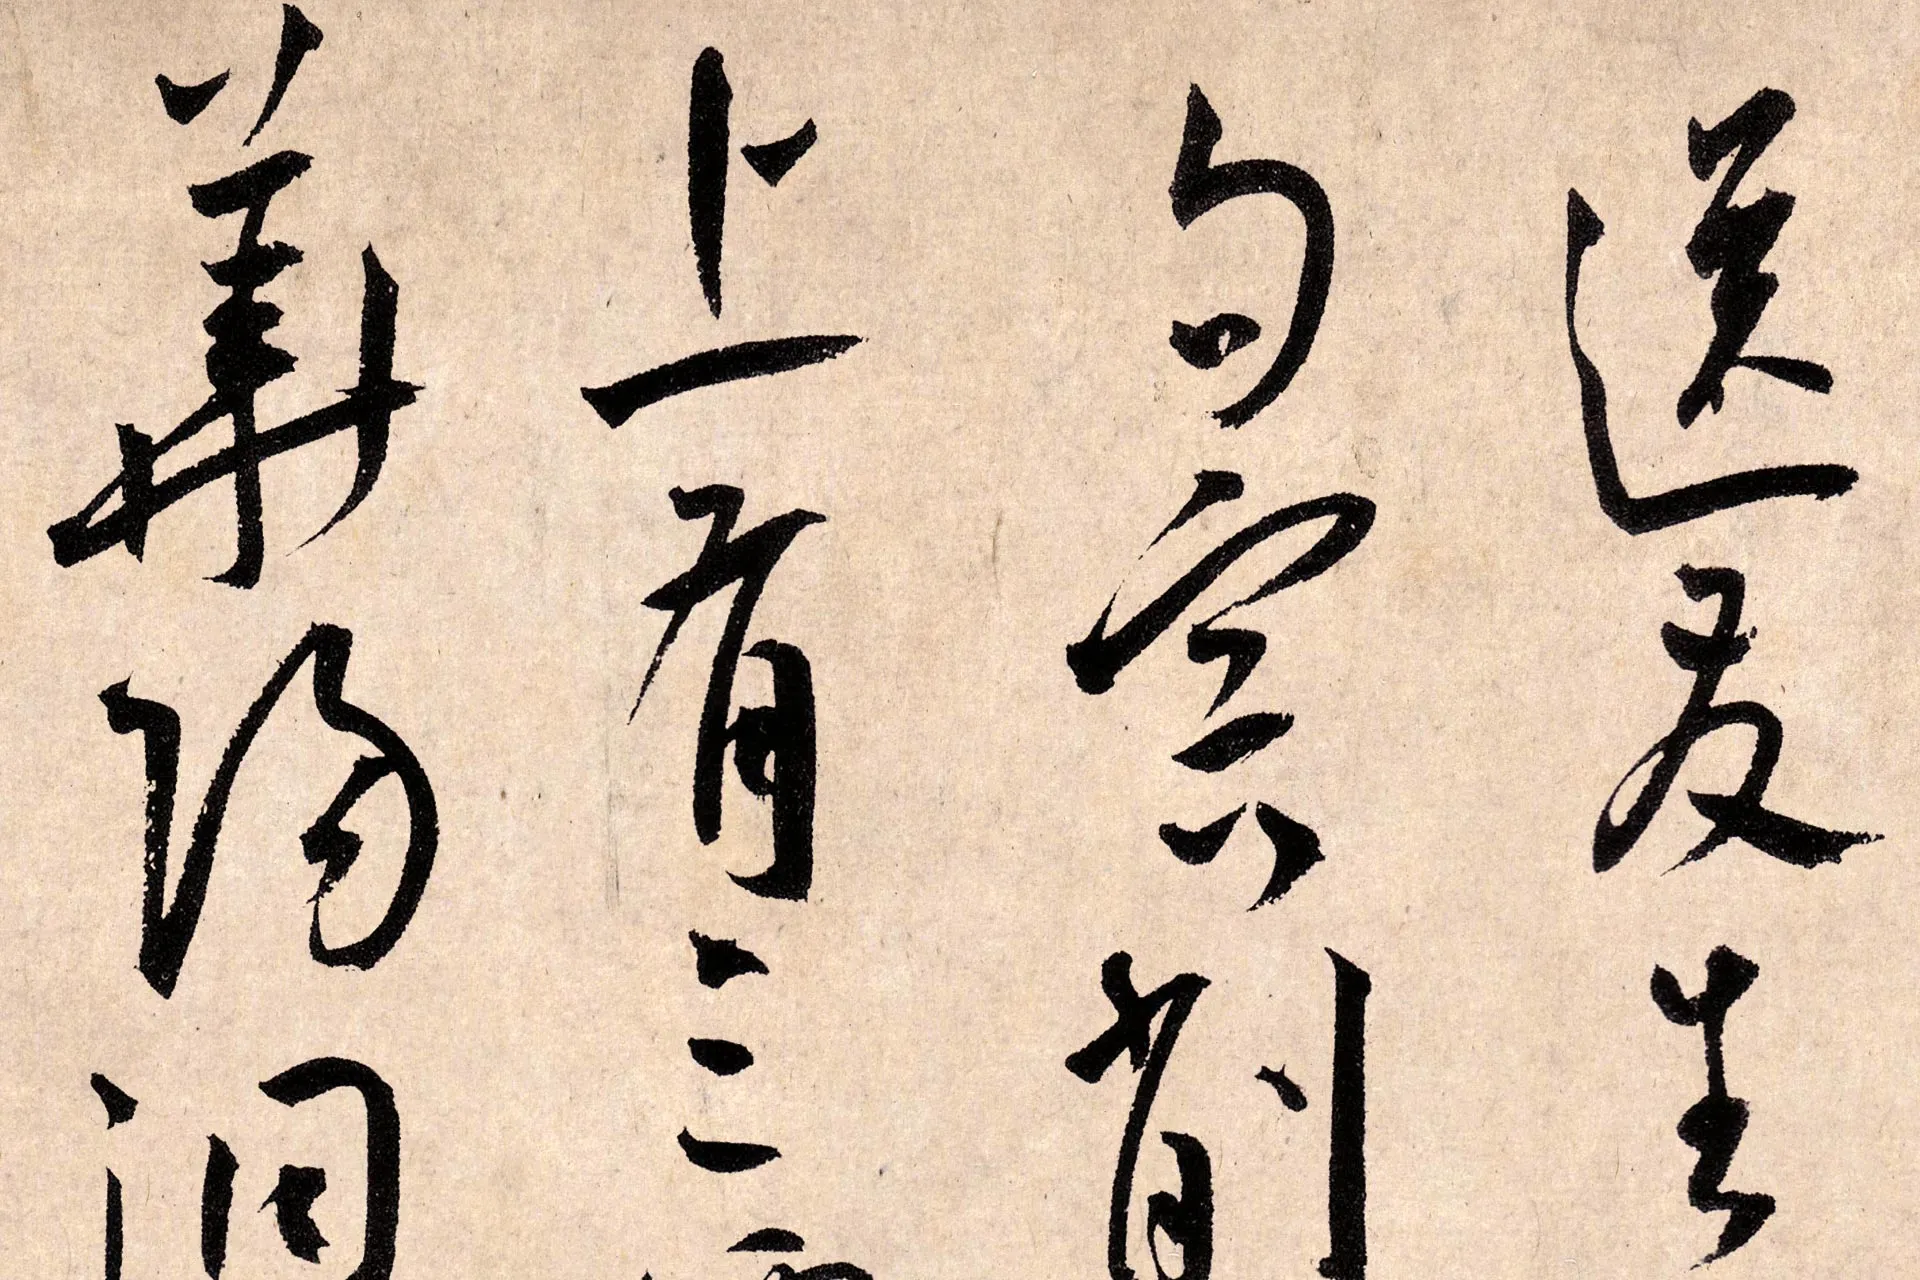 送友生
句容削
上有三
華陽洞